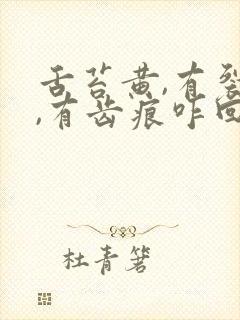 舌苔黄,有裂
,有齿痕咋回
杜青箸